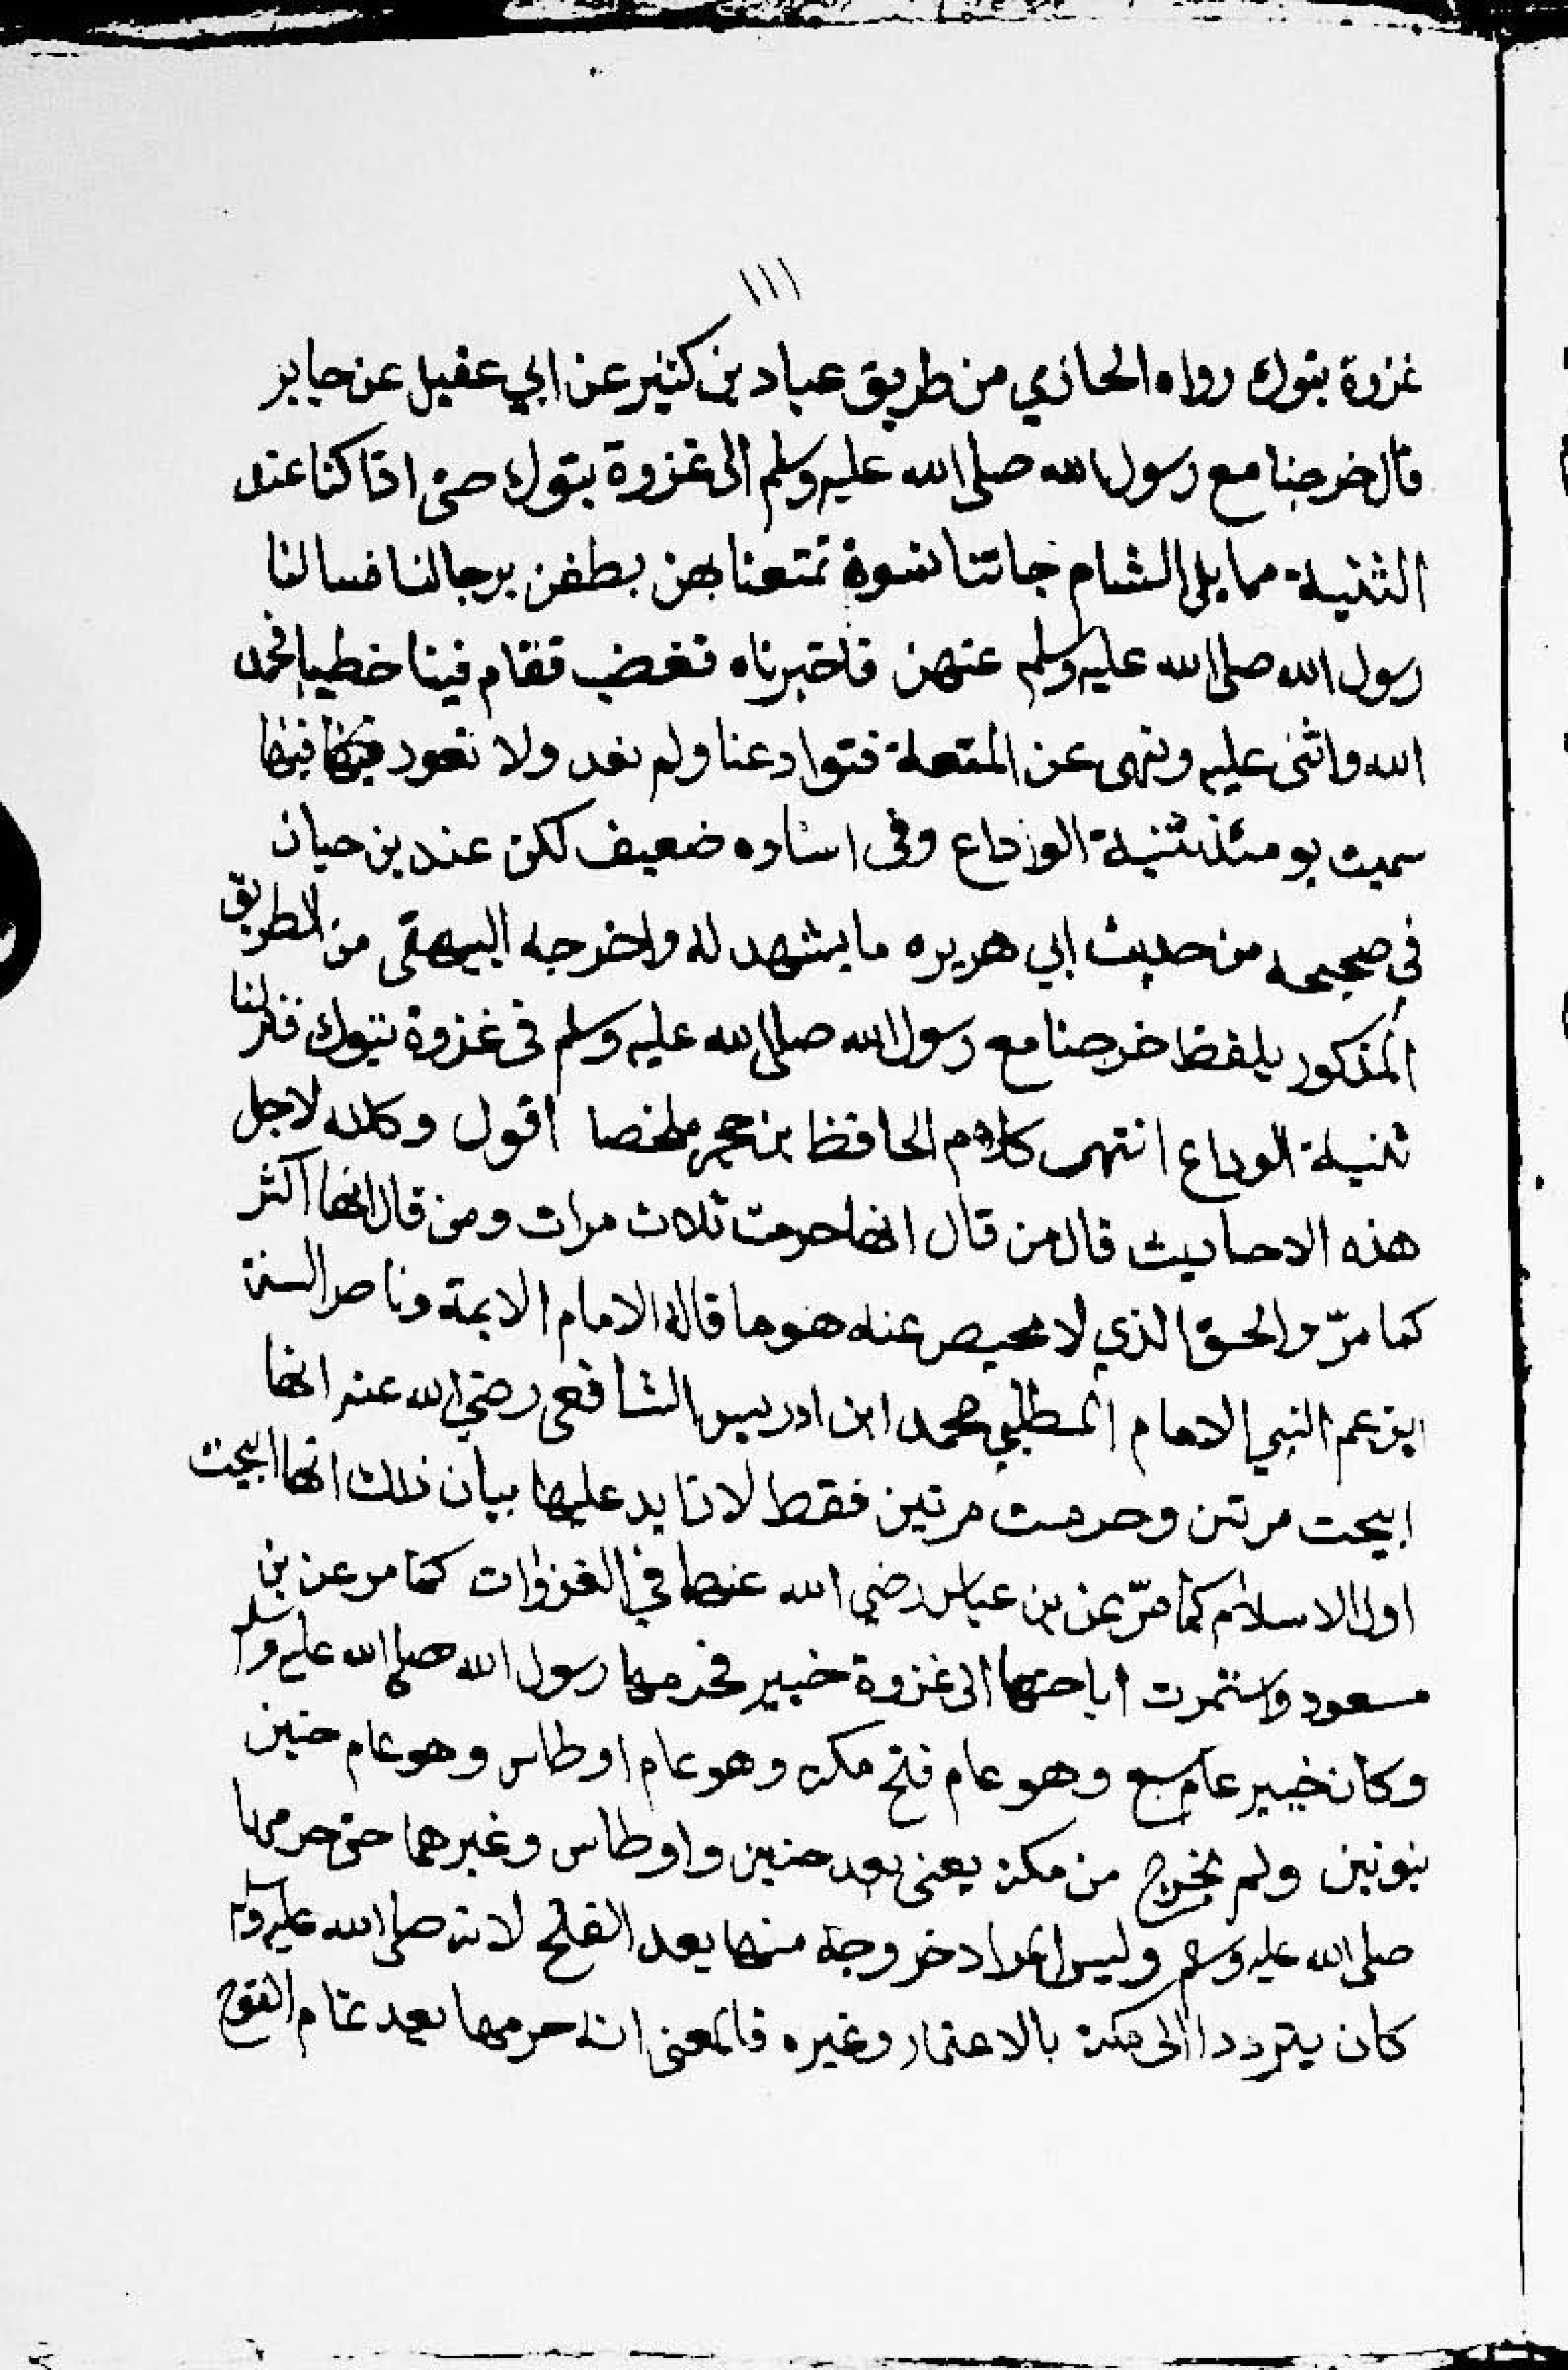 ١١١
غزوة بتوك رواه الحازمي من طريق عباد بن كثير عن ابي عقيل عن جابر
قال خرجنا مع رسول الله صلى الله عليه وسلم الى غزوة بتوك حتى اذا كنا عند
الثنية مما يلي الشام جائتنا نسوة تمتعنا بهن يطفن برجالنا فسالنا
رسول الله صلى الله عليه وسلم عنهن فاخبرناه فغضب فقام فينا خطيبا فحمد
الله واثنى عليه ونهى عن المتعة فتوادعنا ولم نعد ولا نعود فيها فيها
سميت يومئذ ثنية الوداع وفى اسناده ضعيف لكن عند بن حبان
فى صحيحه من حديث ابي هريره ما يشهد له واخرجه البيهقى من الطريق
المذكور بلفظ خرجنا مع رسول الله صلى الله عليه وسلم فى غزوة تبوك فنزلنا
ثنية الوداع انتهى كلام الحافظ بن حجر ملخصا اقول وكانه لاجل
هذه الاحاديث قال من قال انها حرمت ثلاث مرات ومن قال انها اكثر
كما مرّ والحق الذي لا محيص عنه هو ما قاله الامام الايمة وناصر السنة
ابن عم النبي الامام المطلبي محمد ابن ادريس الشافعى رضي الله عنه انها
ابيحت مرتين وحرمت مرتين فقط لا زايد عليها بيان ذلك انها ابيحت
اول الاسلام كما مرّ عن بن عباس رضي الله عنهما في الغزوات كما مر عن بن
مسعود واستمرت اباحتها الى غزوة خيبر فحرمها رسول الله صلى الله عليه وسلم
وكان خيبر عام سبع وهو عام فتح مكه وهو عام اوطاس وهو عام حنين
بنونين ولم يخرج من مكة يعنى بعد حنين واوطاس وغيرهما حتى حرمها
صلى الله عليه وسلم وليس المراد خروجة منها بعد الفتح لانه صلى الله عليه وسلم
كان يتردد الى مكة بالاعتمار وغيره فالمعنى انه حرمها بعد تمام الفتوح